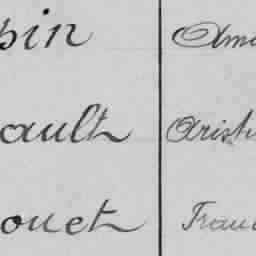 pin Ama
ault Arist
ouet Fran